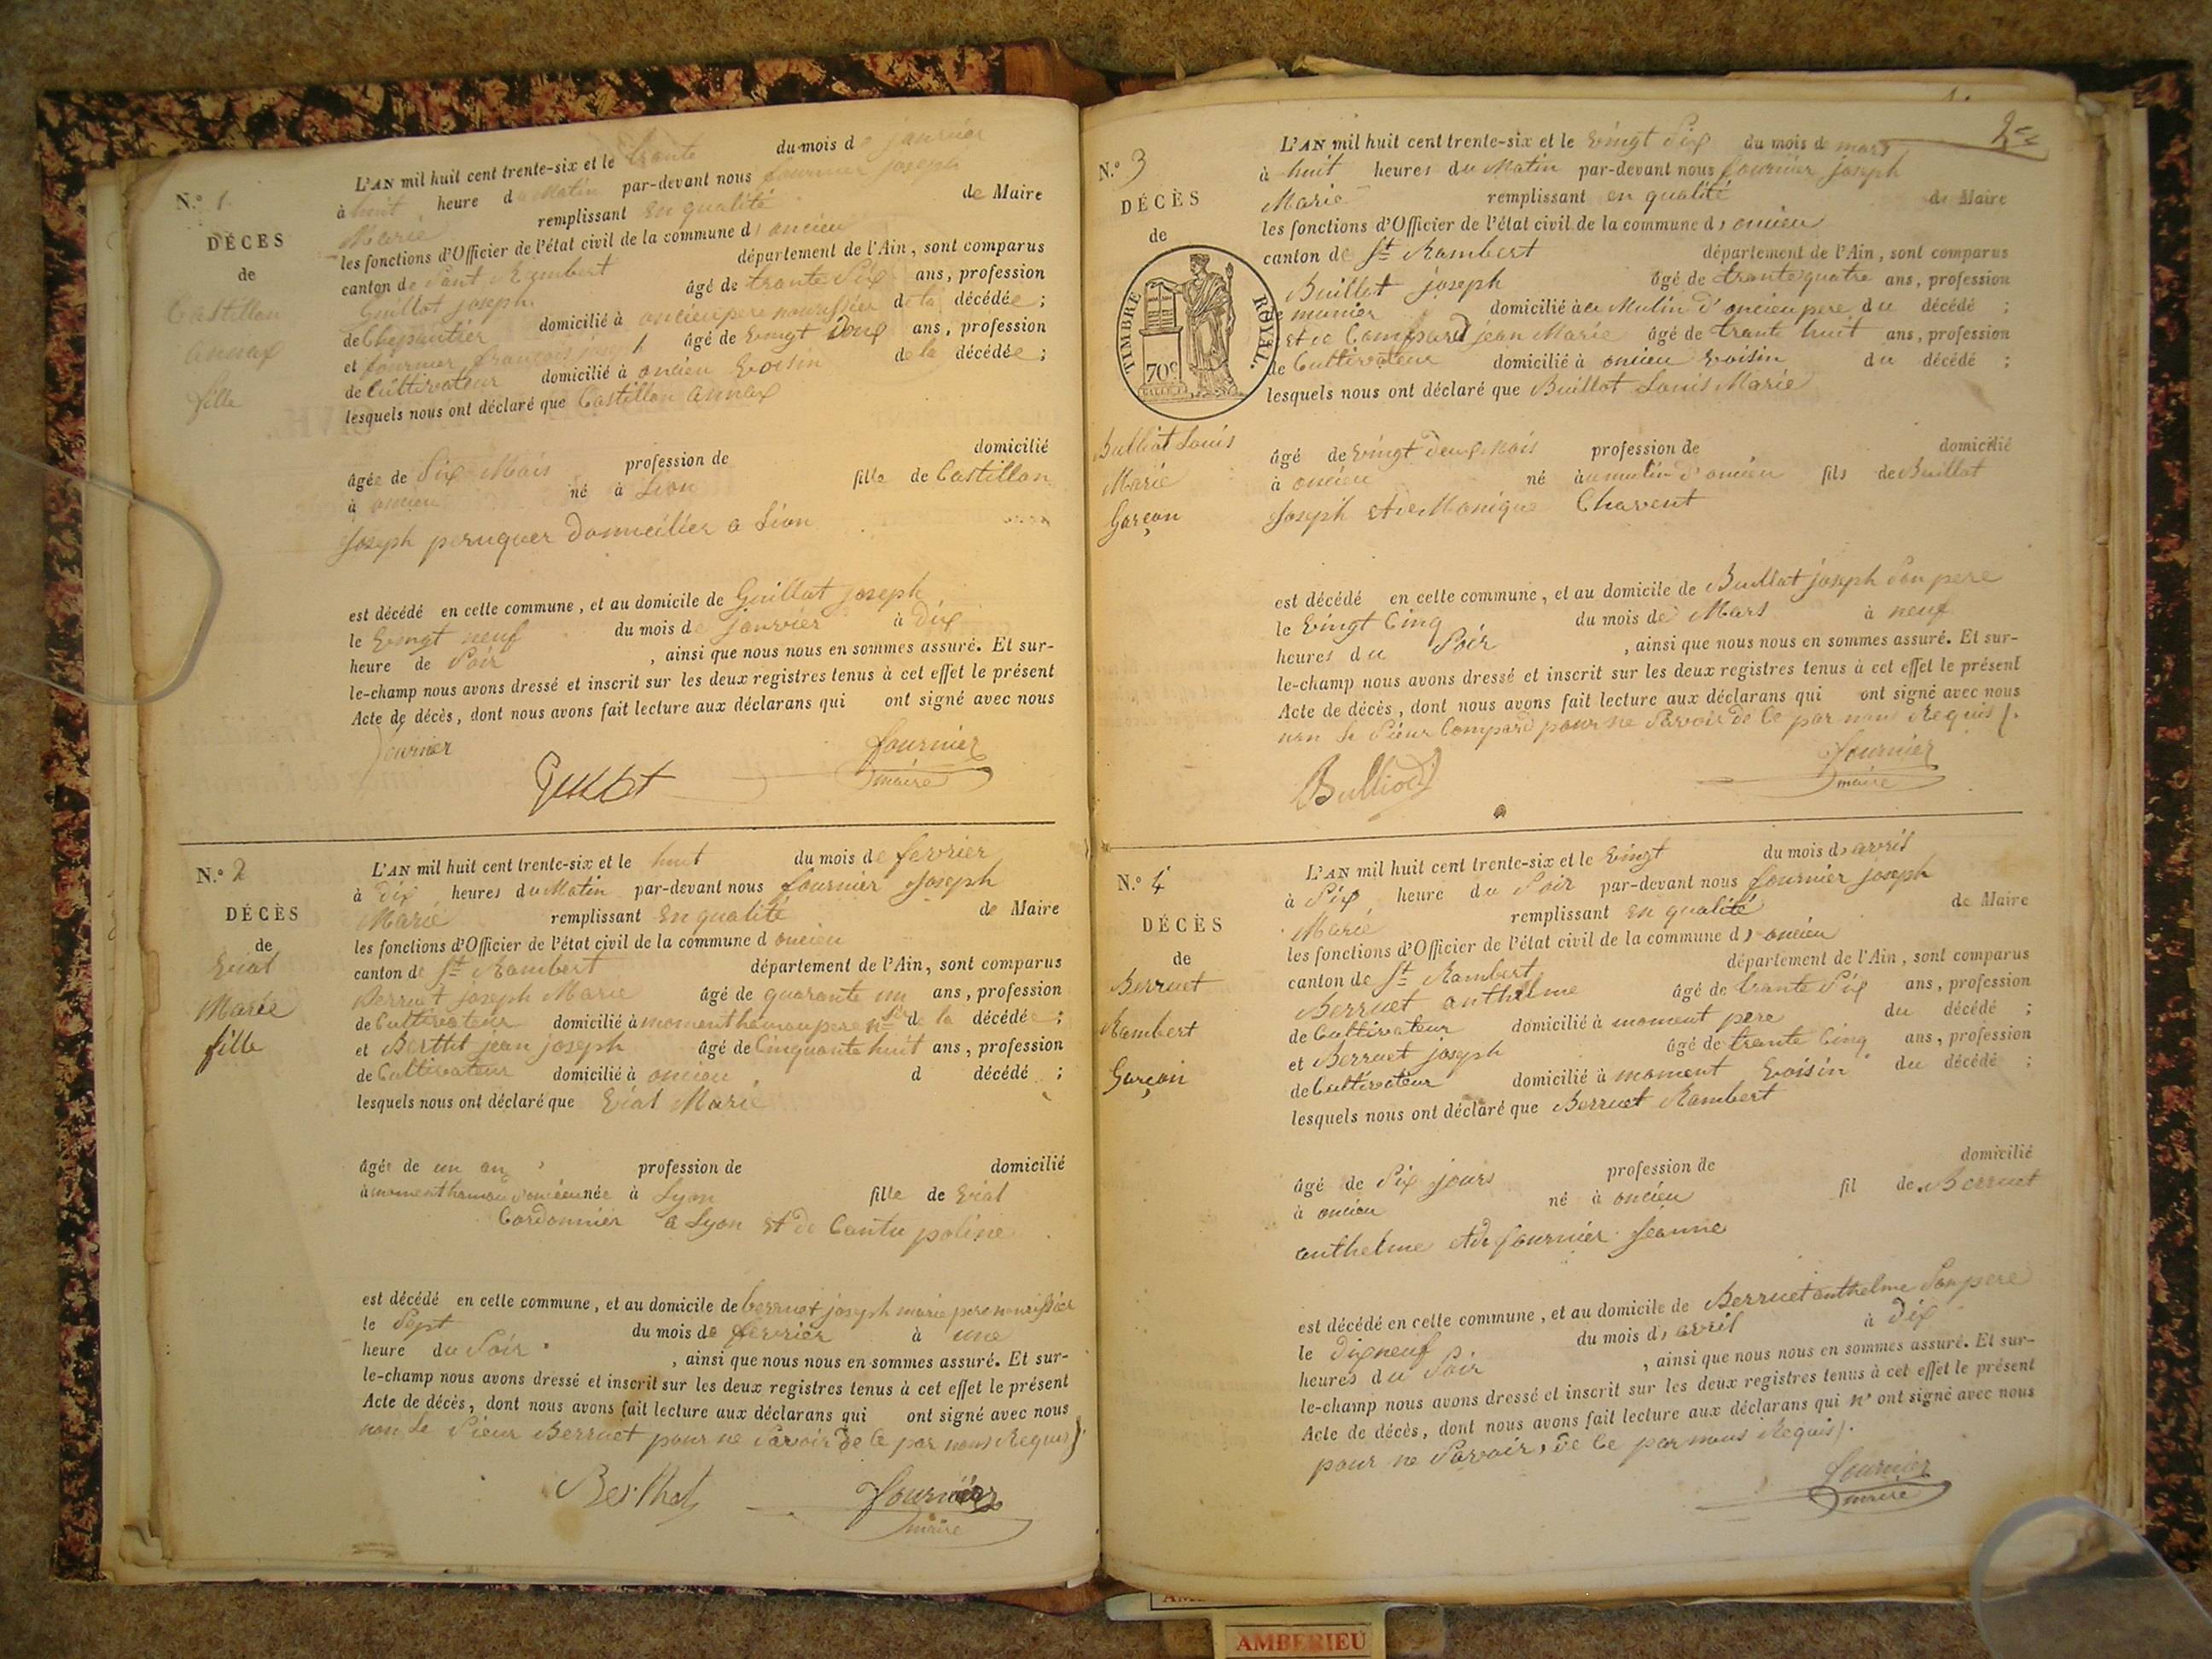 N.º 1
DÉCES
de
Castillon
annax
fille
L'AN mil huit cent trente-six et le trante du mois de janvier
à huit heure du Matin par-devant nous fournier joseph
Marie remplissant en qualité de Maire
les fonctions d'Officier de l'état civil de la commune d'oncieu
canton de Sant Rambert département de l'Ain, sont comparus
Guillot joseph âgé de trante Six ans, profession
de Chepautier domicilié à oncieu pere nourissier de la décédée ;
et fournier francois joseph âgé de vingt deux ans, profession
de Cultivateur domicilié à oncieu voisin de la décédée ;
lesquels nous ont déclaré que Castillon annax
âgée de Six Mois profession de domicilié
à oncieu né à Lion fille de Castillon
Joseph peruquer domicilier a Lion
est décédé en cette commune, et au domicile de Guillot joseph
le vingt neuf du mois de janvier à dix
heure de Soir , ainsi que nous nous en sommes assuré. Et sur-
le-champ nous avons dressé et inscrit sur les deux registres tenus à cet effet le présent
Acte de décès, dont nous avons fait lecture aux déclarans qui ont signé avec nous
fournier
Guillot
fournier
maire
N.º 2
DÉCÈS
de
Vial
Marie
fille
L'AN mil huit cent trente-six et le huit du mois de fevrier
à dix heures du Matin par-devant nous fournier Joseph
Marie remplissant en qualité de Maire
les fonctions d'Officier de l'état civil de la commune d oncieu
canton de St Rambert département de l'Ain, sont comparus
Berruet joseph Marie âgé de quarante un ans, profession
de Cultivateur domicilié à moment hamau pere nsier de la décédée ;
et Berthet jean joseph âgé de Cinquante huit ans, profession
de Cultivateur domicilié à oncieu d décédé ;
lesquels nous ont déclaré que Vial Marie
âgée de un an profession de domicilié
à moment hamau d'oncieu née à Lyon fille de Vial
Cordonnier a Lyon et de Cantu poline
est décédé en cette commune, et au domicile de berruet joseph marie pere nourissier
le Sept du mois de fevrier à une
heure du Soir , ainsi que nous nous en sommes assuré. Et sur-
le-champ nous avons dressé et inscrit sur les deux registres tenus à cet effet le présent
Acte de décès, dont nous avons fait lecture aux déclarans qui ont signé avec nous
non Le Sieur Berruet pour ne Savoir de Ce par nous Requis
Berthet
fournier
maire
2e
N.º 3
DÉCÈS
de
TIMBRE ROYAL.
70c
Bulliot Louis
Marie
Garçon
L'AN mil huit cent trente-six et le vingt Six du mois de mars
à huit heures du Matin par-devant nous fournier joseph
Marie remplissant en qualité de Maire
les fonctions d'Officier de l'état civil de la commune d'oncieu
canton de St Rambert département de l'Ain, sont comparus
Buillot joseph âgé de trante quatre ans, profession
de munier domicilié à au Mulin d'oncieu pere du décédé ;
et de Compard jean Marie âgé de trant huit ans, profession
de Cultivateur domicilié à oncieu voisin du décédé ;
lesquels nous ont déclaré que Buillot Louis Marie
âgé de vingt deux mois profession de domicilié
à oncieu né à au mulin d'oncieu fils de Buillot
Joseph et de Monique Charent
est décédé en cette commune, et au domicile de Buillot joseph Son pere
le vingt Cinq du mois de Mars à neuf
heures du Soir , ainsi que nous nous en sommes assuré. Et sur-
le-champ nous avons dressé et inscrit sur les deux registres tenus à cet effet le présent
Acte de décès, dont nous avons fait lecture aux déclarans qui ont signé avec nous
non le Sieur Compard pour ne Savoir de Ce par nous Requis
Bulliod
fournier
maire
N.º 4
DÉCÈS
de
Berruet
Rambert
Garçon
L'AN mil huit cent trente-six et le vingt du mois d'avril
à Six heure du Soir par-devant nous fournier joseph
Marie remplissant en qualité de Maire
les fonctions d'Officier de l'état civil de la commune d'oncieu
canton de St Rambert département de l'Ain, sont comparus
Berruet anthelme âgé de trante Six ans, profession
de Cultivateur domicilié à moment pere du décédé ;
et Berruet joseph âgé de trante Cinq ans, profession
de Cultivateur domicilié à moment voisin du décédé ;
lesquels nous ont déclaré que Berruet Rambert
âgé de Six jours profession de domicilié
à oncieu né à oncieu fil de Berruet
anthelme et de fournier Jeanne
est décédé en cette commune, et au domicile de Berruet anthelme Son pere
le dix neuf du mois d'avril à dix
heures du Soir , ainsi que nous nous en sommes assuré. Et sur-
le-champ nous avons dressé et inscrit sur les deux registres tenus à cet effet le présent
Acte de décès, dont nous avons fait lecture aux déclarans qui n'ont signé avec nous
pour ne Savoir, de Ce par nous Requis
fournier
maire
AMBERIEU